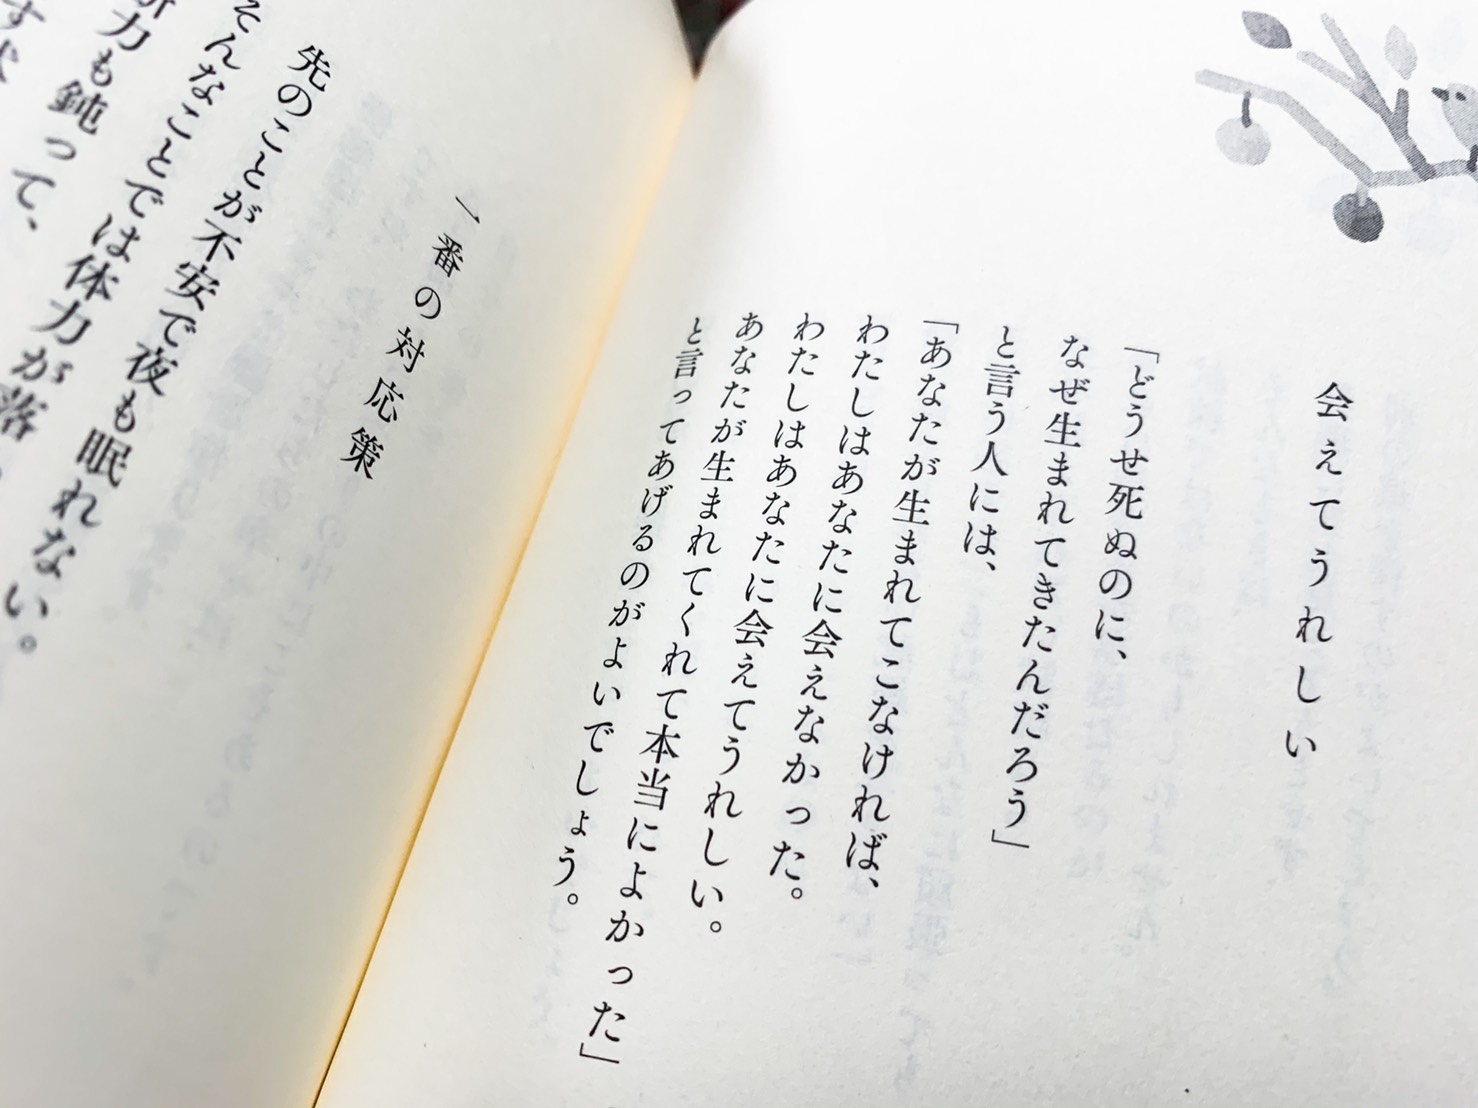 会えてうれしい
「どうせ死ぬのに、
なぜ生まれてきたんだろう」
と言う人には、
「あなたが生まれてこなければ、
わたしはあなたに会えなかった。
わたしはあなたに会えてうれしい。
あなたが生まれてくれて本当によかった」
と言ってあげるのがよいでしょう。
一番の対応策
先のことが不安で夜も眠れない。
そんなことでは体力が落
力も鈍って、